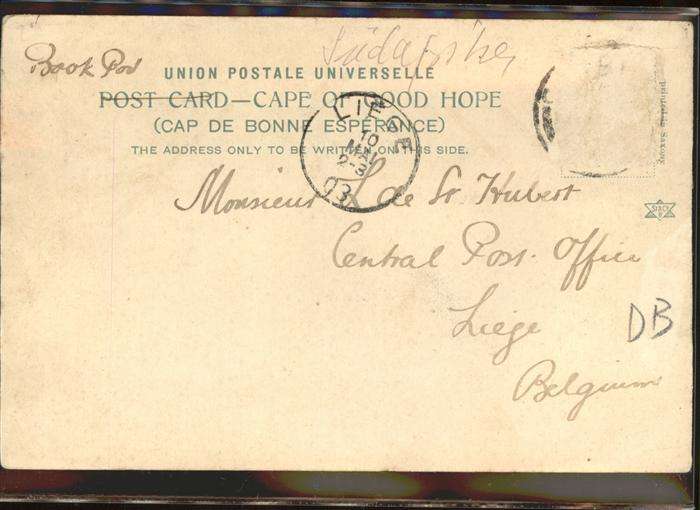 Südafrika
Book Post
UNION POSTALE UNIVERSELLE
POST CARD—CAPE OF GOOD HOPE
(CAP DE BONNE ESPÉRANCE)
THE ADDRESS ONLY TO BE WRITTEN ON THIS SIDE.
LIEGE
10
MAI
2-3
03
Monsieur L de St Hubert
Central Post Office
Liege
Belgium
DB